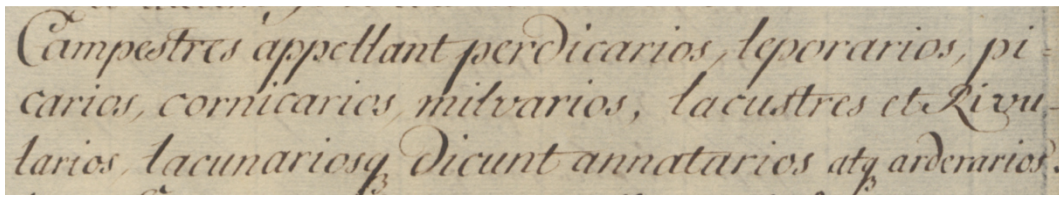 Campestres appellant perdicarios, leporarios, pi-
carios, cornicarios, milvarios, lacustres et Rivu
larios, lacunariosq dicunt annatarios atq arderarios.